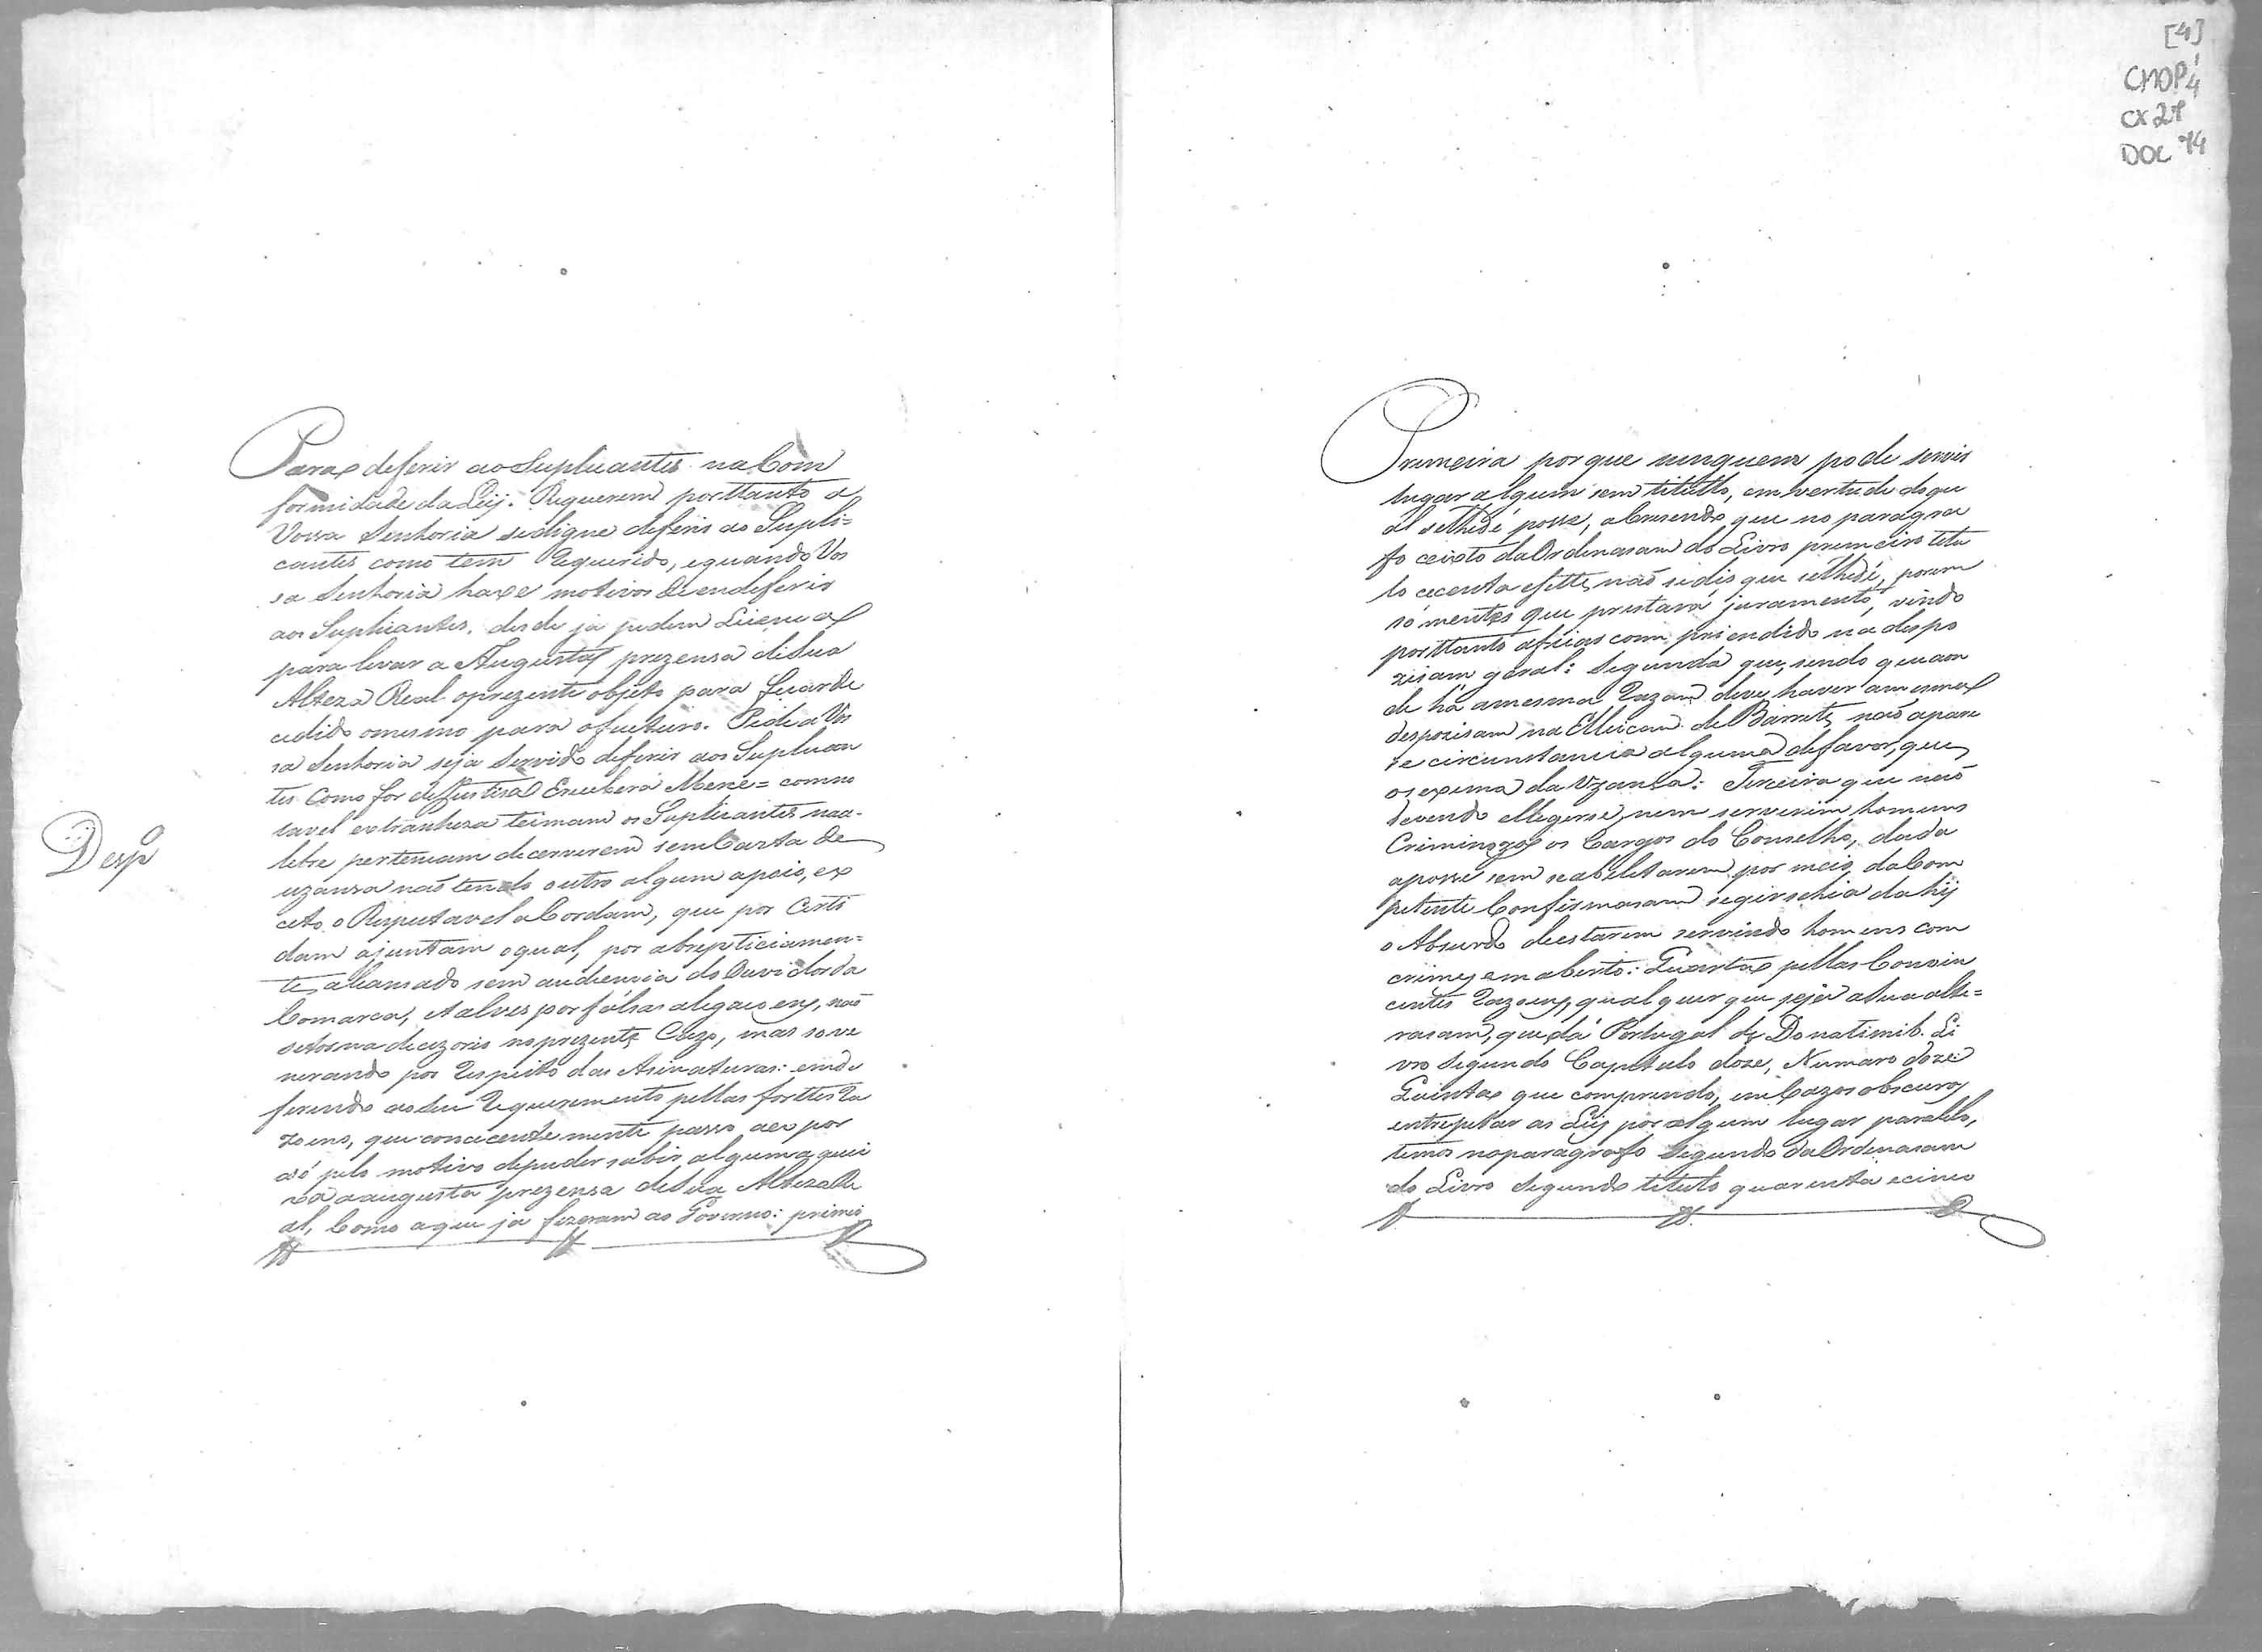 [4]
CMOP
CX 21
DOC 74
Para deferir ao Suplicantes na Com
formidade da Leÿ. Requerem porttanto a
Vossa Senhoria sedigne deferir ao Supli=
cantes como tem Requerido, equando Vos
sa Senhoria haxe motivos de endeferir
aos Suplicantes, desde ja pedem Licenca
para levar a Augusta prezensa de Sua
Alteza Real oprezente objeto para Ficar de
cedido omesmo para ofucturo. Pede a Vos
sa Senhoria seja Servido deferir aos Suplican
tes Como for de Justisa E recebera Merce = comno
tavel extranheza teimam os Suplicantes naa-
lebre pertencam decerverem sem Carta de
Despº
uzansa naõ tendo outro algum apoio, ex
ceto o Respeitavel aCordam, que por Certi
dam ajuntam oqual, por abrepticiamen=
te alcansado sem audiencia do Ouvidor da
Comarca, etalves por fálsas alegacoens, naõ
setorna decizorio noprezente Cazo, mas so ve
nerando por Respeito das Asinaturas: emde
ferindo ao seu Requerimento pellas forttes Ra
zoens, que conacentemente passo aex por
só pelo motivo depuder subir alguma quei
xa aaugusta prezensa desua Alteza Re
al, Como aque ja fizeram ao Governo: primei
Primeira por que ninguem pode servir
lugar algum sem titullo, em vertude do qu
al selhedé posse, aCresendo que no paragra
fo ceisto da Ordenasam do Livro primeiro titu
lo cecenta esette, naõ sedis que selhedé, porem
sómentes que prestará juramento, vindo
porttanto aficar com priendido na despo
zisam géral: Segunda que, sendo que aon
de há amesma Razam deve haver amesma
despozisam na Elleicam de Barrete, naõ apare
se circunstancia alguma defavor, que
os exima da Uzansa: Terceira que naõ
devendo ellegerse, nem servirem homens
Criminozos os Cargos do Conselho, dada
aposse sem seabelitarem por meio da Com
petente Confirmasam segirsehia dahÿ
o Absurdo deestarem servindo homens com
crimes em aberto: Quarta pellas Convin
centes Razoens, qual quer que seja asua alte=
rasam, que dá Portugal de Donationib. Li
vro Segundo Capitulo doze, Numaro doze:
Quinta que comprendo, em Cazos obscuros
entrepetar as Leÿ por algum lugar paralelo,
temos noparagrafo Segundo da Ordenasam
do Livro Segundo titulo quarenta ecinco